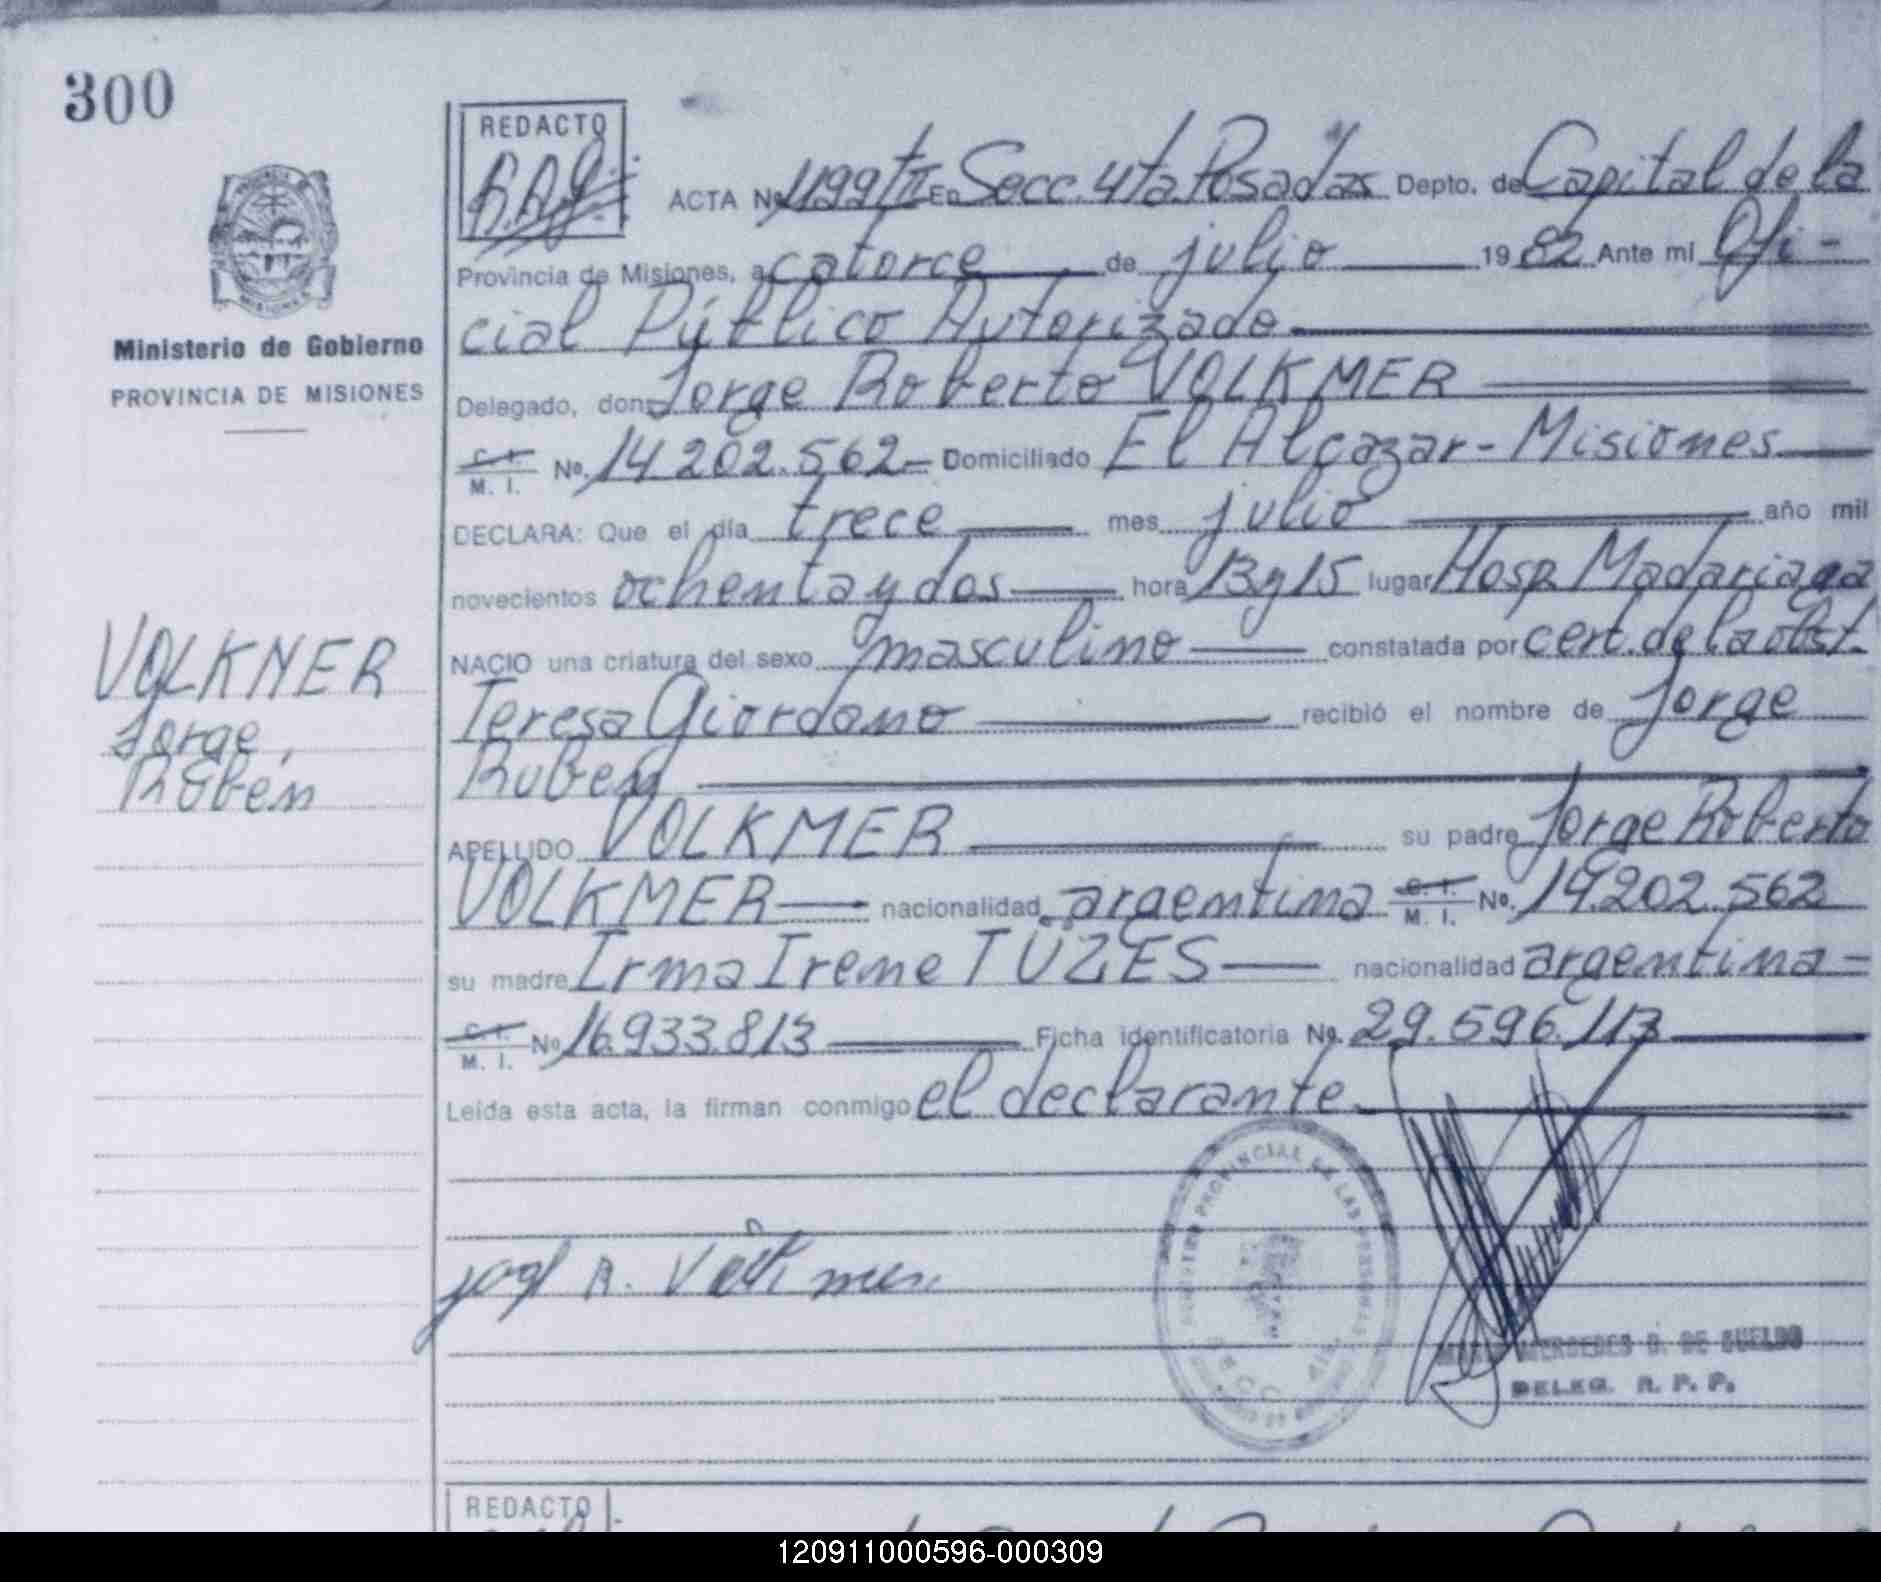 300
REDACTO
ACTA Nº 1199 tII En Secc. 4ta. Posadas Depto. de Capital de la
Provincia de Misiones, a catorce de julio 1982 Ante mi Ofi-
cial Público Autorizado
Ministerio de Gobierno
PROVINCIA DE MISIONES
Delegado, don Jorge Roberto VOLKMER
C. I. M. I. Nº. 14.202.562 Domiciliado El Alcazar - Misiones
DECLARA: Que el día trece mes julio año mil
novecientos ochenta y dos hora 13 y 15 lugar Hosp. Madariaga
VOLKNER
Jorge
Rubén
NACIO una criatura del sexo masculino constatada por cert. de la obst.
Teresa Giordano recibió el nombre de Jorge
Ruben
APELLIDO VOLKMER su padre Jorge Roberto
VOLKMER nacionalidad argentina C. I. M. I. Nº. 14.202.562
su madre Irma Irene TÜZES nacionalidad argentina
C. I. M. I. Nº 16.933.813 Ficha identificatoria Nº. 29.596.113
Leída esta acta, la firman conmigo el declarante
PROVINCIAL DE LAS PERSONAS
MERCEDES D. DE SUELDO
DELEG. R. P. P.
REDACTO
120911000596-000309